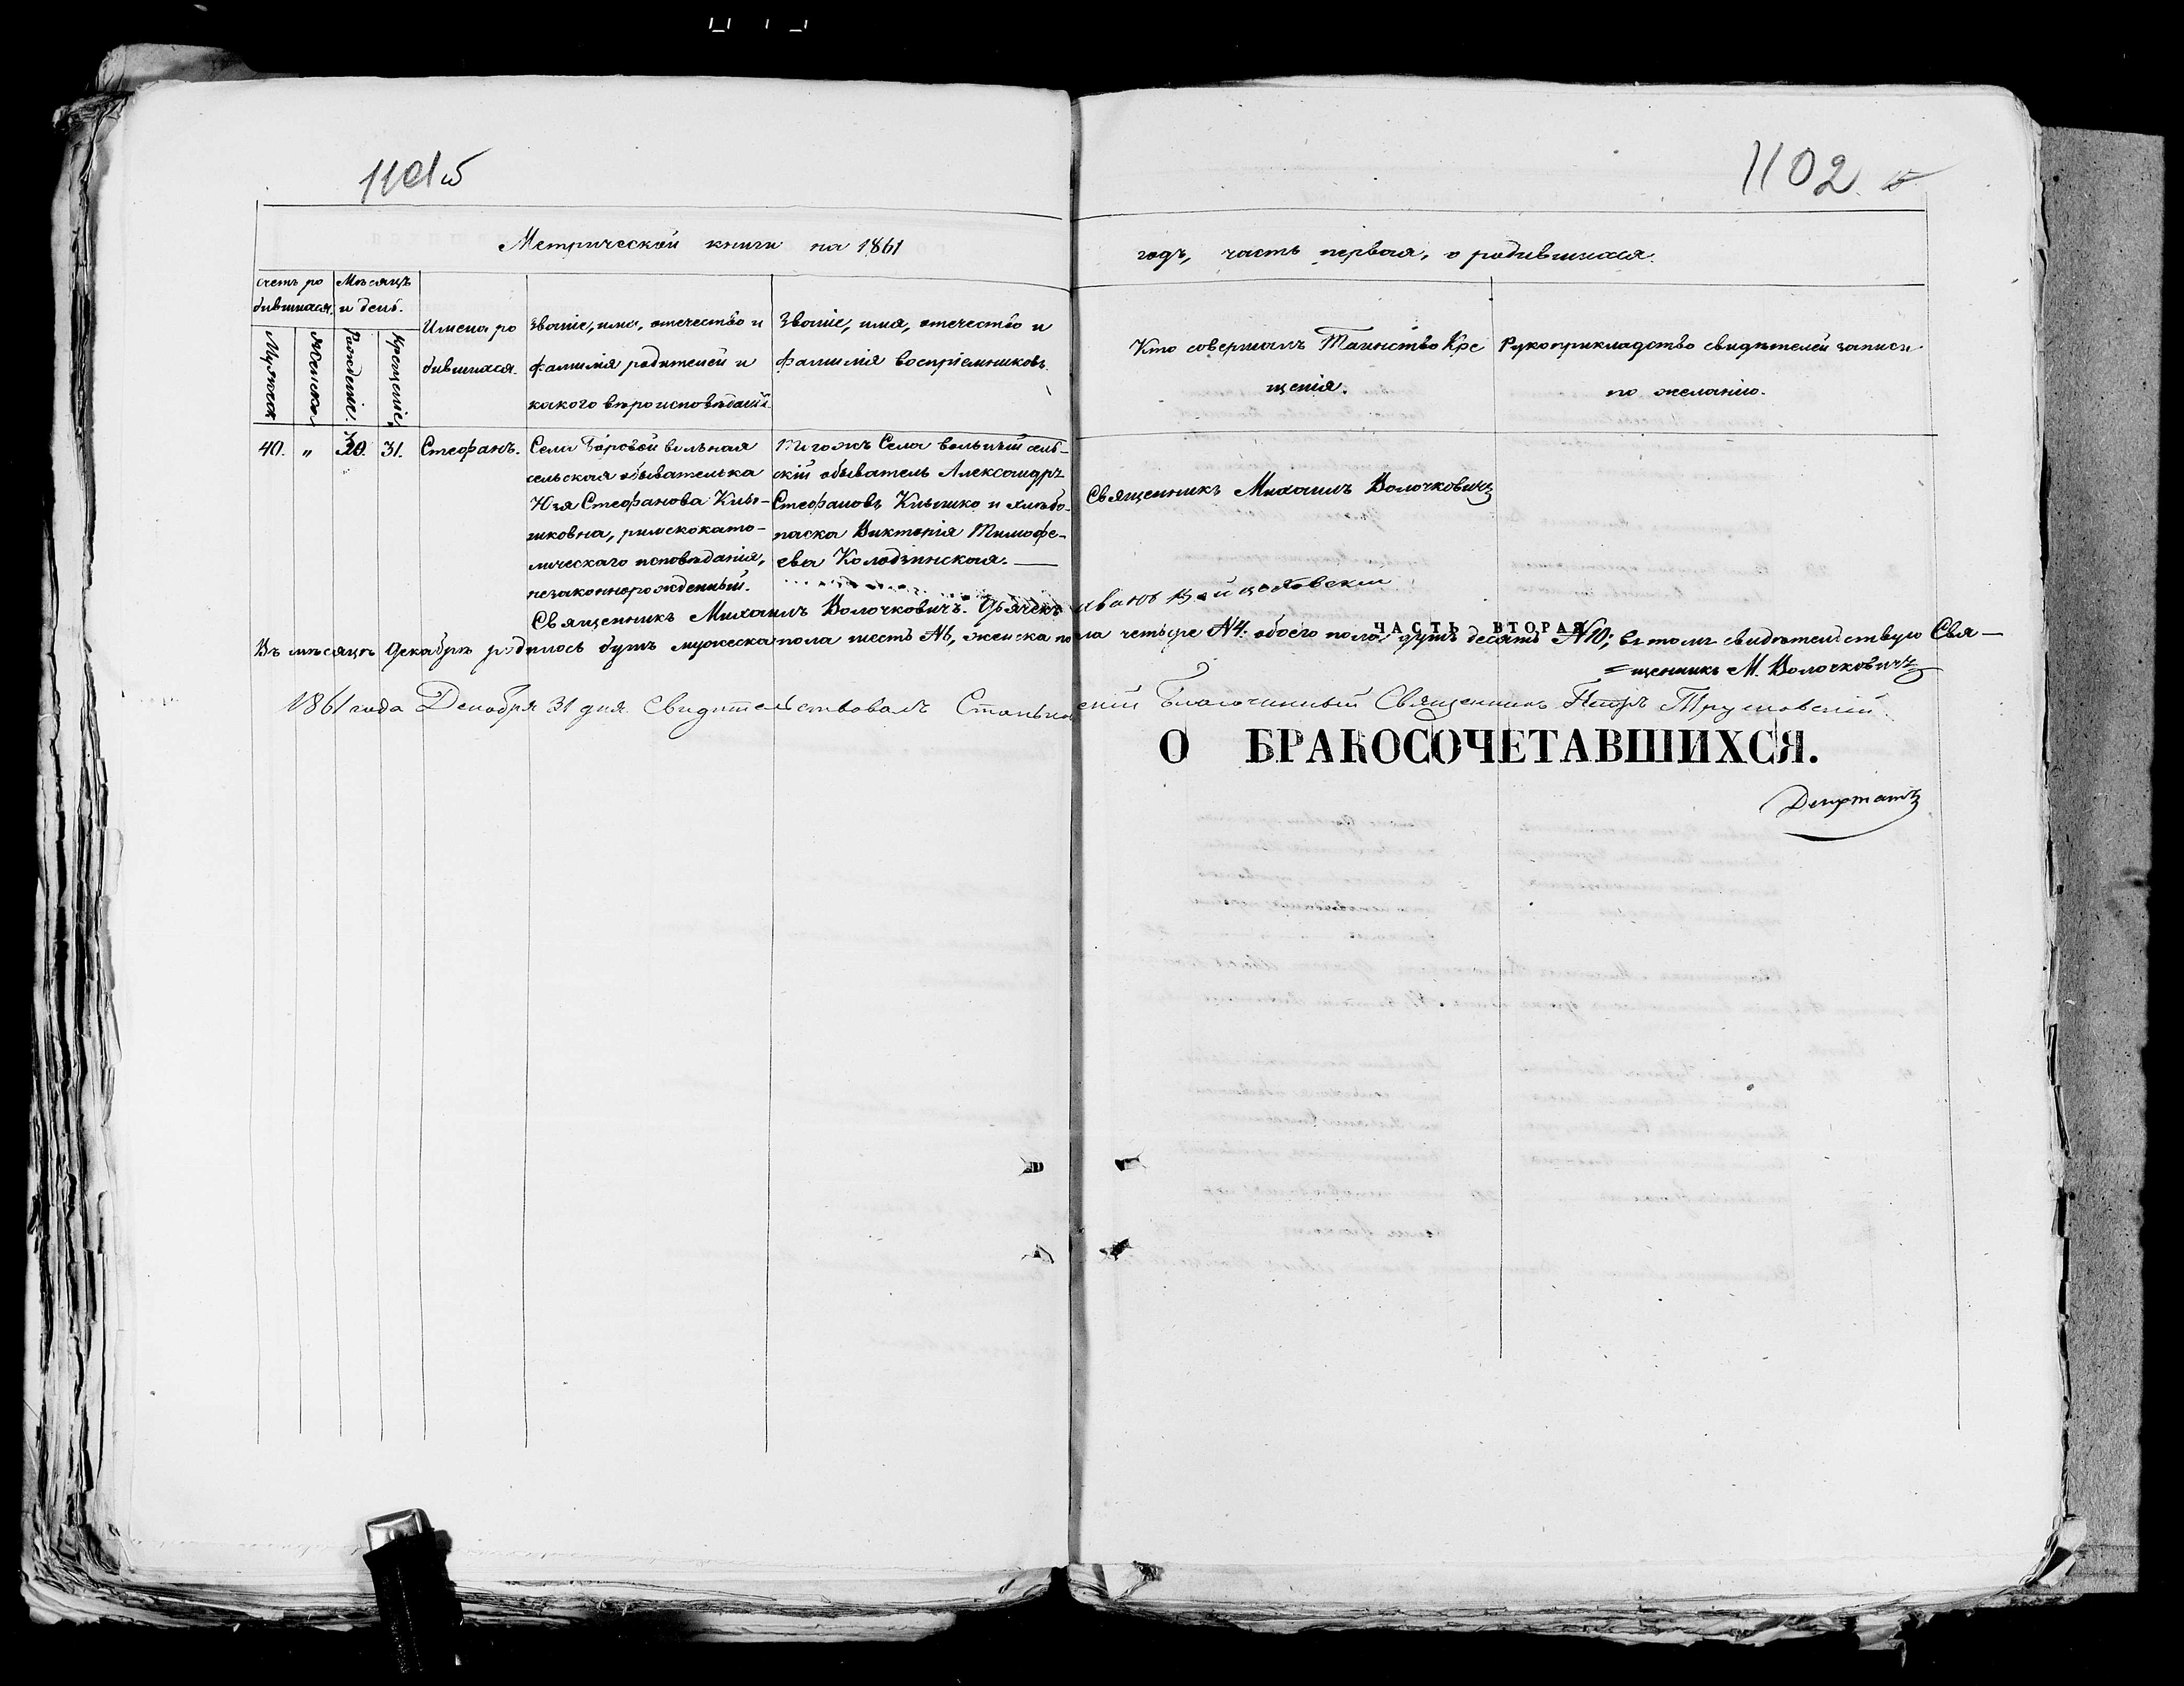 1102
Метрической книги на 1861
годъ, часть первая, о родившихся.
счетъ ро
дившихся.
Мѣсяцъ
и день.
Мужеска
Женска
Рожденіе.
Крещеніе.
Имена ро
дившихся.
Званіе, имя, отечество и
фамилія родителей и
какого вѣроисповѣданія.
Званіе, имя, отечество и
фамилія воспріемниковъ.
Кто совершалъ Таинство Кре
щенія.
Рукоприкладство свидѣтелей записи
по желанію.
40. " 30. 31. Стефанъ.
Села Боровой вольная
сельская обывателька
Стефанова Клы-
шковна, римскокато-
лическаго исповѣданія,
незаконнорожденный.
тогожъ Села вольный сель-
скій обыватель Александръ
Стефановъ Клышко и
Виктория Тимофе-
ева Колодзинская.
Священникъ Михаилъ Волочковичъ
Священникъ Михаилъ Волочковичъ. Дьячекъ Иванъ
Въ мѣсяцѣ Декабрѣ родилось душъ мужеска пола шесть №6, женска пола четыре №4. обоего пола душъ десять №10; въ томъ свидѣтельствую Свя-
щенникъ М. Волочковичъ
ЧАСТЬ ВТОРАЯ
1861 года Декабря 31 дня Свидѣтельствовалъ Благочинный Священникъ Петръ
О БРАКОСОЧЕТАВШИХСЯ.
Депутатъ